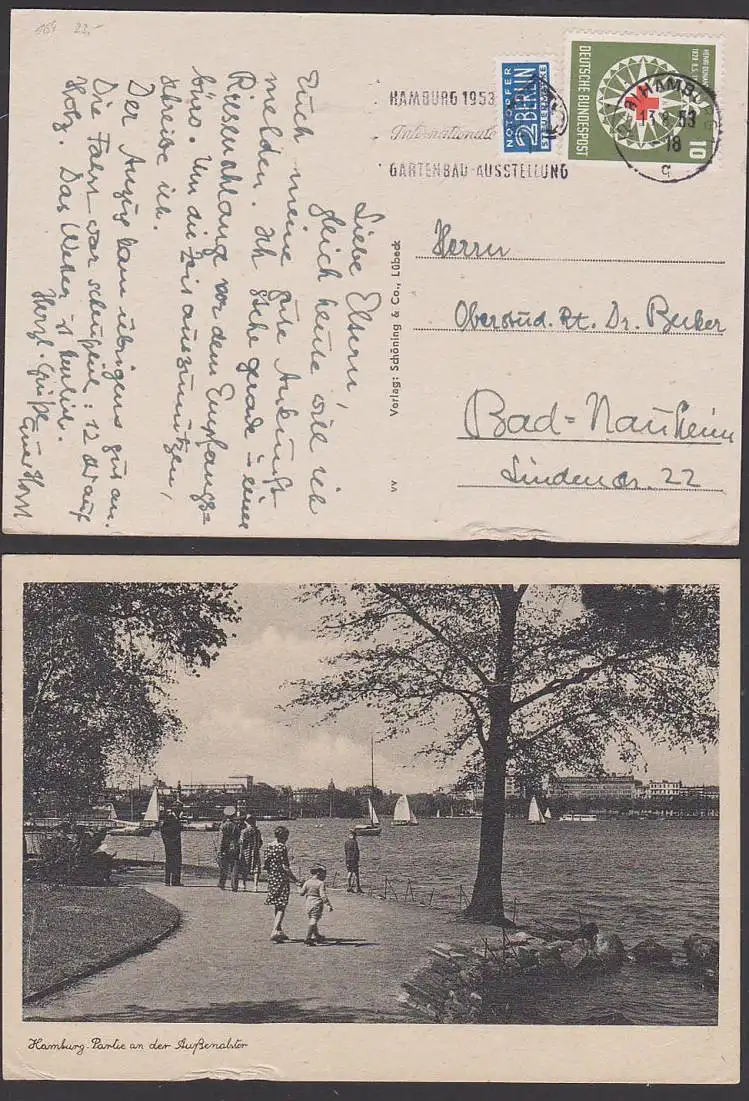 169 23,-
Liebe Eltern,
gleich heute will ich
Euch meine gute Ankunft
melden. Ich stehe gerade in einer
Riesenschlange vor dem Empfangs=
büro. Um die Zeit auszunützen,
schreibe ich.
Der Anzug kam übrigens gut an.
Die Fahrt war : 12 Std auf
Holz. Das Wetter ist herrlich.
Herzl. Grüße
Euer Horst
Verlag: Schöning & Co., Lübeck
VV
HAMBURG 1953
Internationale
GARTENBAU-AUSSTELLUNG
NOTOPFER
2 BERLIN
STEUERMARKE
DEUTSCHE BUNDESPOST
HENRI DUNANT
1828 8.5.
10
HAMBURG
53
18
Herrn
Oberstud. Rt. Dr. Becker
Bad=Nauheim
Lindenstr. 22
Hamburg. Partie an der Außenalster